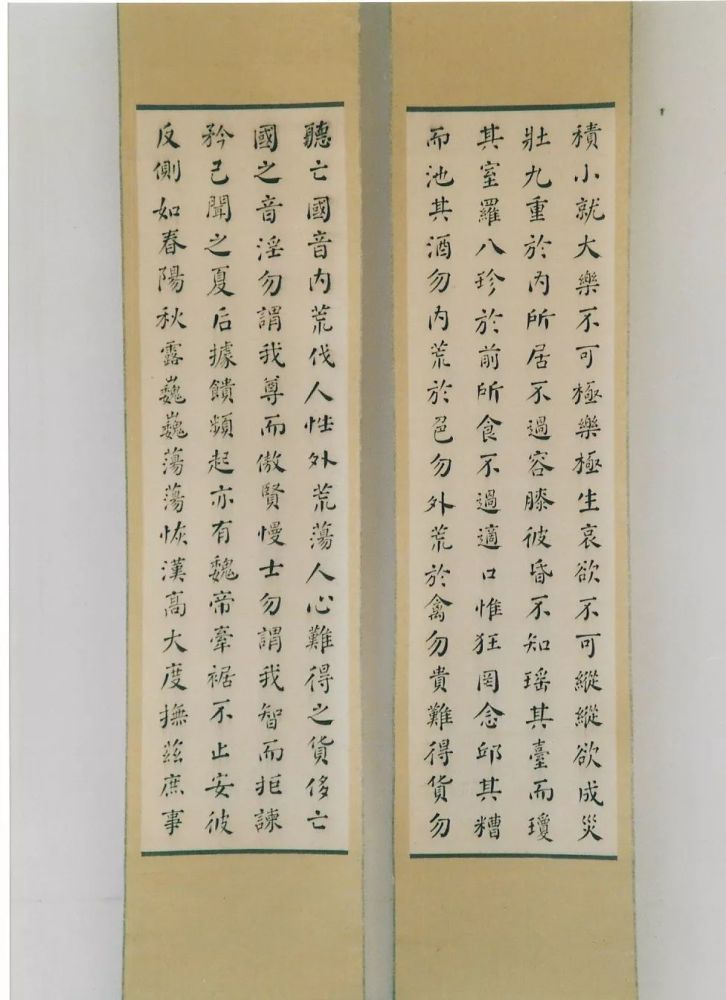 積小就大樂不可極樂極生哀欲不可縱縱欲成災
壯九重於内所居不過容膝彼昏不知瑤其臺而瓊
其室羅八珍於前所食不過適口惟狂罔念邱其糟
而池其酒勿内荒於色勿外荒於禽勿貴難得貨勿
聽亡國音内荒伐人性外荒蕩人心難得之貨侈亡
國之音淫勿謂我尊而傲賢慢士勿謂我智而拒諫
矜己聞之夏后據饋頻起亦有魏帝牽裾不止安彼
反側如春陽秋露巍巍蕩蕩恢漢高大度撫茲庶事